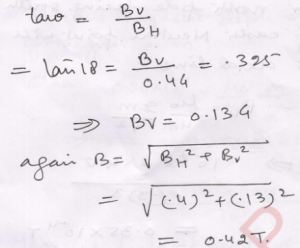 tanθ = Bv / BH
= tan 18 = Bv / 0.4G = .325
⇒ Bv = 0.13G
again B = √BH² + Bv²
= √(.4)² + (.13)²
= 0.42 T.